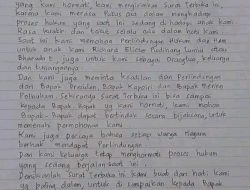 yang kami hormati, kami mengirimkan Surat Terbuka ini,
karena kami merasa Putus asa dalam menghadapi
proses hukum yang saat ini sedang dihadapi anak kami
Rasa kuatir dan takut selalu ada dalam hati kami.
Saat ini kami memohon Perlindungan Hukum dan Hak
untuk anak kami Richard Eliezer Pudihang Lumiu atau
Bharada E, juga untuk kami sebagai Orangtua, keluarga
dan tunangannya
Dan kami juga meminta keadilan dan Perlindungan
dari Bapak Presiden, Bapak Kapolri dan Bapak Menko
Polhukam Sekiranya Surat terbuka ini bisa sampai
kepada Bapak-Bapak yg kami hormati, kami mohon
Bapak-Bapak dapat bertindak secara bijaksana, untuk
memenuhi permohonan kami
Kami juga percaya bahwa setiap warga negara
berhak mendapat Perlindungan.
Dan kami keluarga tetap menghormati proses hukum
yang sedang berjalan saat ini.
Demikianlah Surat Terbuka ini kami buat dari hati kami
yg paling dalam untuk di sampaikan kepada Bapak